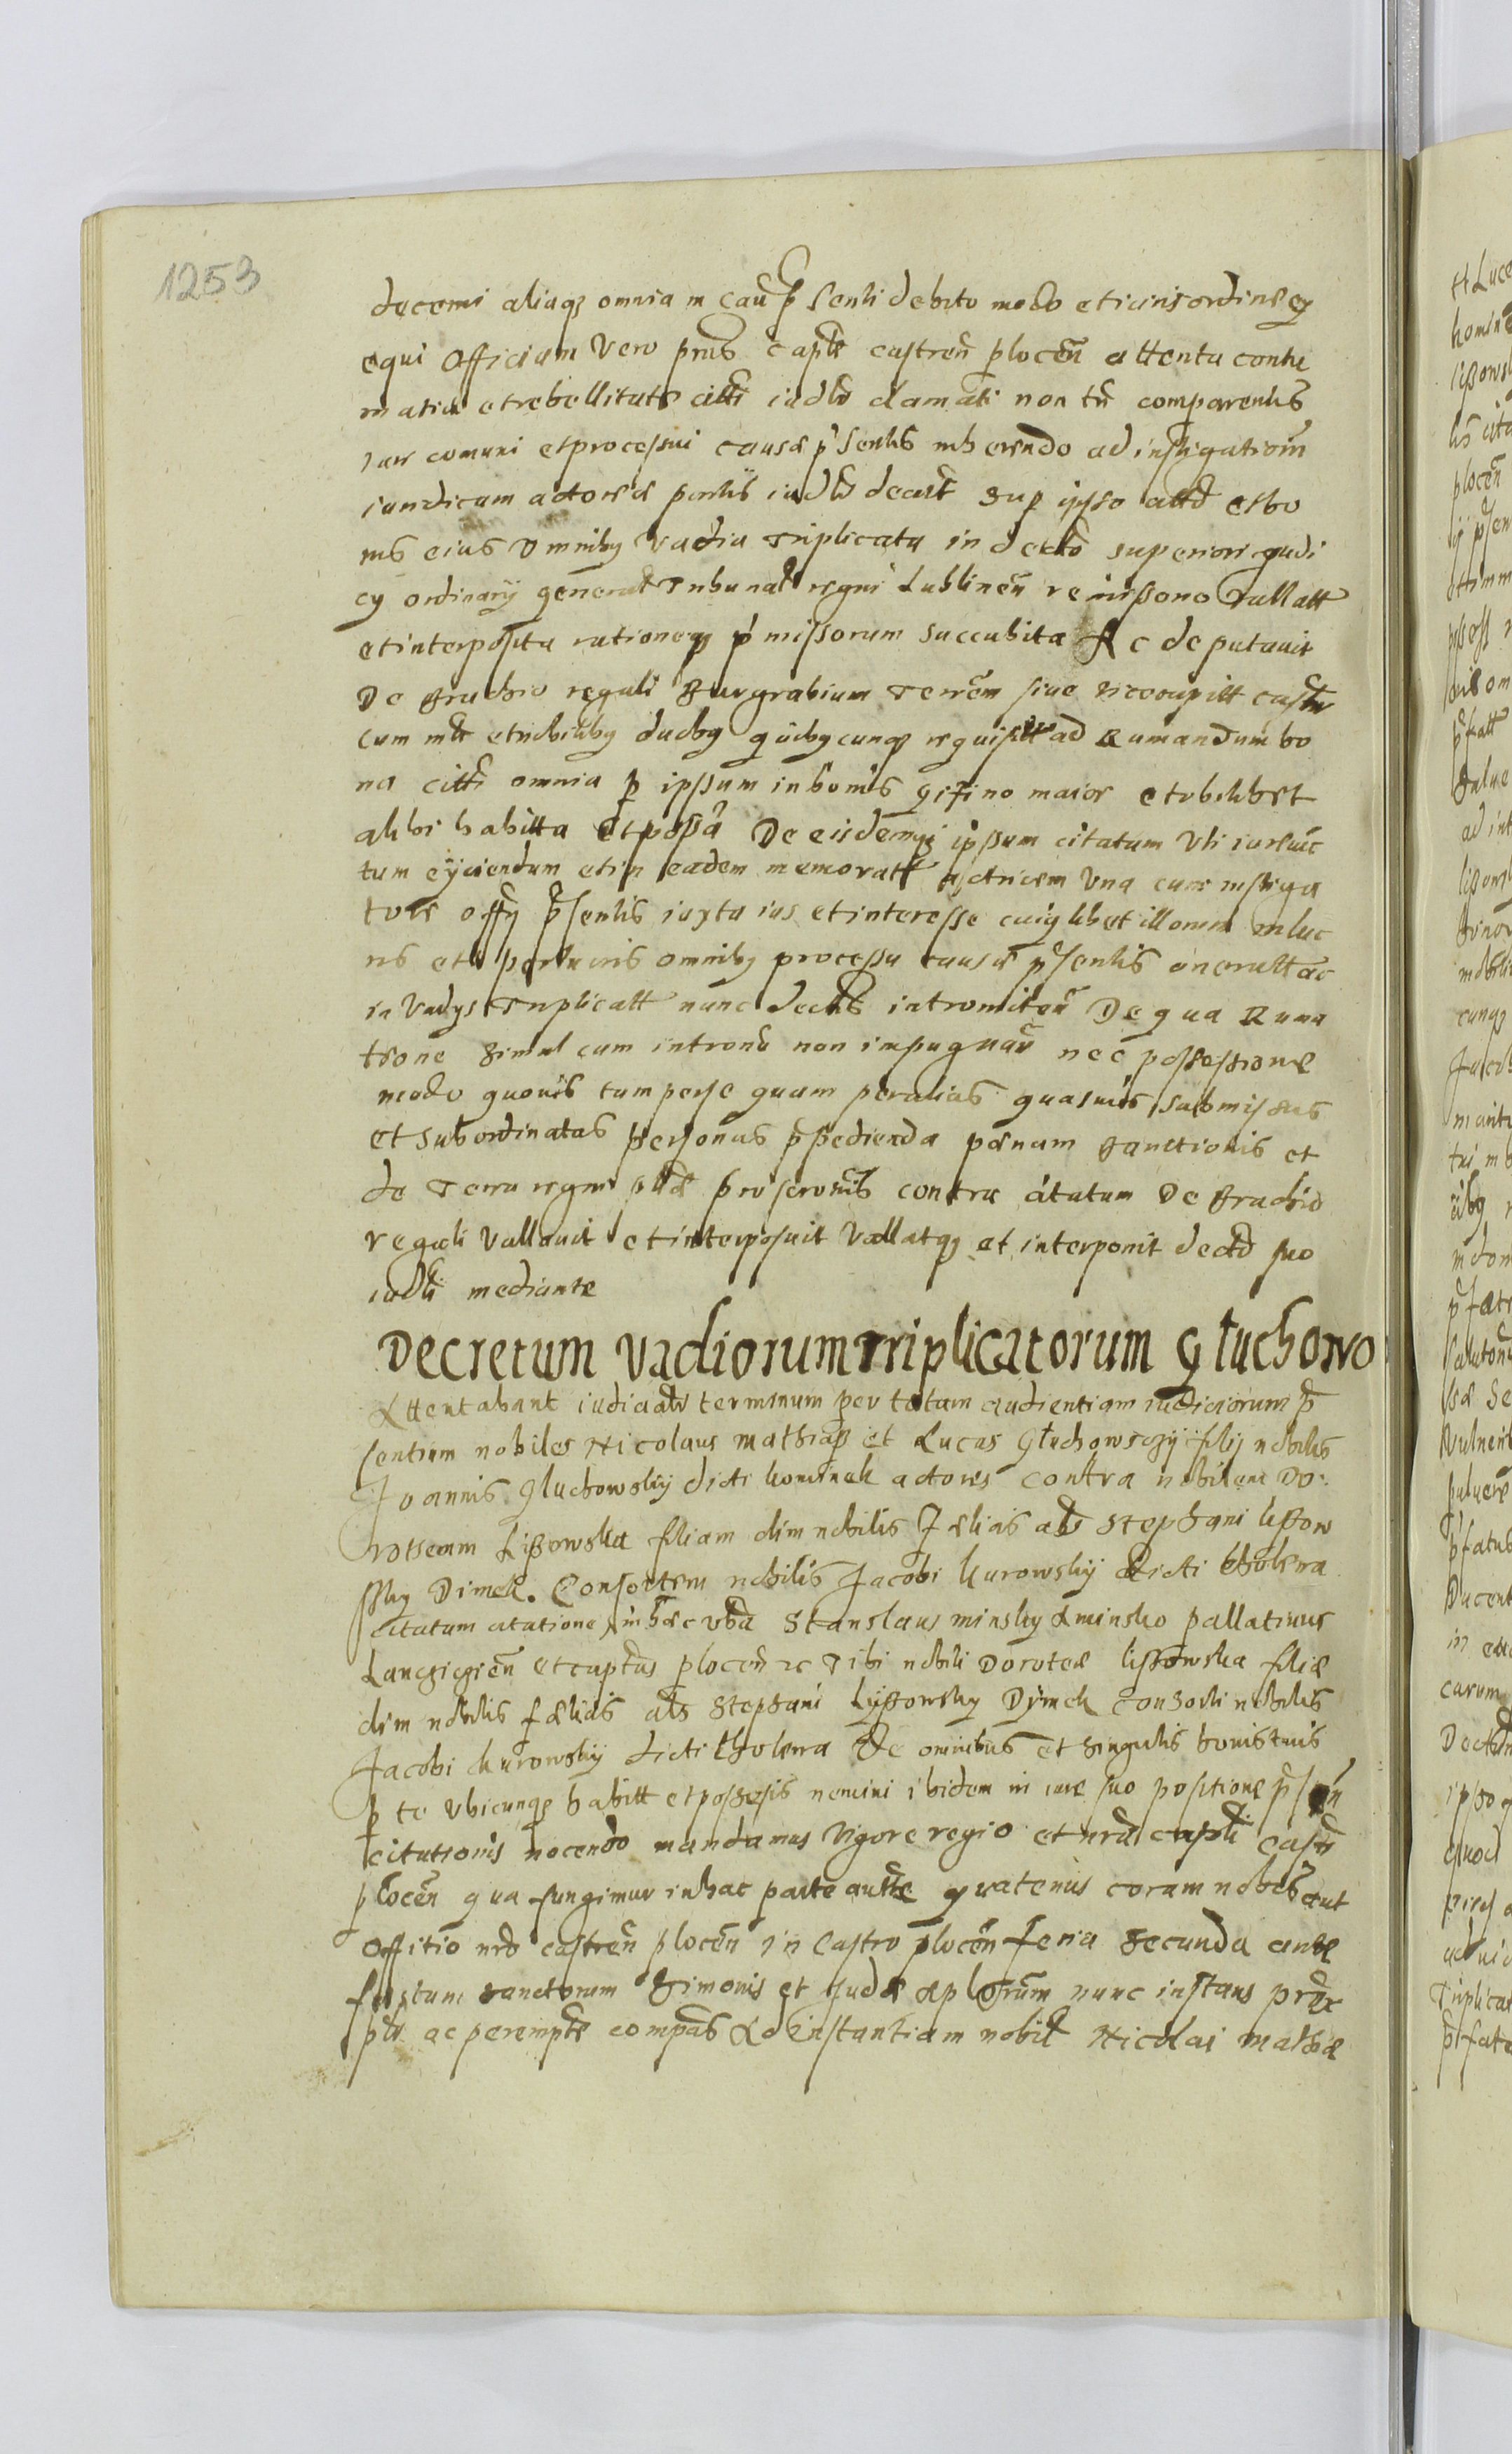 1253
decerni aliaq; omnia in caũ p̃senti debito modo et iuris ordine ex
equi Officium vero prñs caple castreñ plocen̄ attenta contu
matia et rebellitate citti iudlr clamati non tñ comparentis
iure comuni et processui causæ p̃sentis inherendo ad instigationem
iuridicam actoreæ partis iudlr decrett sup ipso citto et bo
nis eius omniby vadia triplicata in decto superiori iudi
cy ordinarÿ general Tribunal regni Lublinen̄ remissono vallatt
et interposita rationeq; p̃missorum succubita Ac deputavit
De brachio regali Burgrabium Terrem̄ siue vicecapitt castr̃
cum mlr et nobiliby duoby quibuscunq; requisitt ad Rumandum bo
na citti omnia p ipsum in bonis gifino maiore et ubilibet
alibi habitta et possa De eisdemq; ipsum citatum vti iure vic
tum eÿciendum et in eadem memoratt actricem Vna cum instiga
tore offÿ p̃sentis iuxta ius et interesse cuiuslibet illorum in luc
ris et perlucris omniby processu causæ p̃sentis onerutt ac
in vadys Triplicatt nunc dectis intromitten̄ De qua Ruma
tione simul cum intromi non impugnan̄ nec possessione
modo quouis tam per se quam per alias quasuis submissas
et subordinatas personas p̃pedienda pœnam banitionis et
de Terra regni pñd proscronis contra citatum De brachio
regali vallauit et interposuit vallatq; et interponit dectō suo
iudli mediante
Decretum Vadiorum Triplicatorum Głuchowo
Attentabant iudiciałr terminum per totam audientiam iudiciorum p̃
sentium nobiles Nicolaus Mathias et Lucas Głuchowsczÿ filÿ nobilis
Joannis Gluchowskÿ dicti kominek actores contra nobilem Do
rotheam Lissowska filiam olim nobilis Fælicis als Stephani Lissow
sky Dimek. Consortem nobilis Jacobi Kurowskÿ dicti Cholewa
citatam citatione in hæc vba Stanislaus minsky de minsko pallatinus
Lancziczien̄ et captus plocen̄ rc Tibi nobili Doroteæ Lissowska filiæ
olim nobilis fælicis als Stephani Lÿssowsky Dÿmek consorti nobilis
Jacobi kurowskÿ dicti Cholewa De omnibus et singulis bonis tuis
p te vbicunq; habitt et possesis nemini ibidem in iure suo positione p̃sen̄
citationis nocendo mandamus vigore regio et nr̃a capli castr̃
plocen̄ qua fungimur in hac parte authte quatenus coram nobis aut
offitio nr̃o castren̄ plocen̄ in Castro plocen̄ feria secunda ante
festum sanctorum Simonis et Judæ aplorum nunc instans
plr ac perempte compas Ad instantiam nobil Nicolai Mathiæ